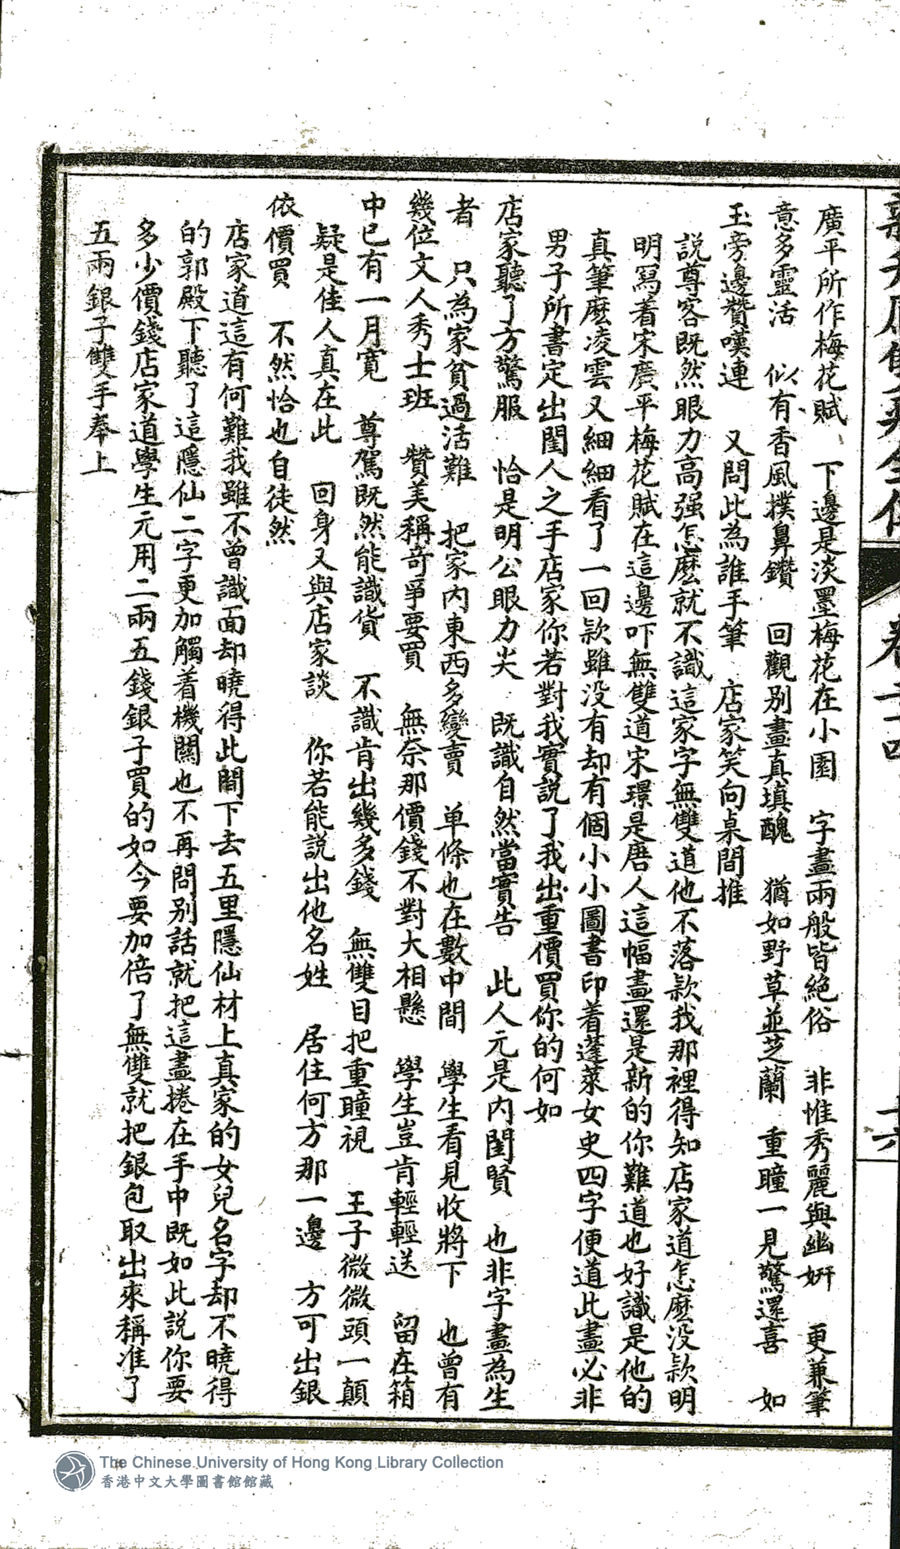 廣平所作梅花賦、下邊是淡墨梅花在小圍　字畫兩般皆絕俗　非惟秀麗與幽妍　更兼筆
意多靈活　似有香風撲鼻鑽　回觀別畫真填醜　猶如野草並芝蘭　重瞳一見驚還喜　如
玉旁邊贊嘆連　又問此為誰手筆　店家笑向桌間推
說尊客既然眼力高强怎麽就不識這家字無雙道他不落款我那裡得知店家道怎麽没款明
明寫着宋廣平梅花賦在這邊吓無雙道宋璟是唐人這幅畫還是新的你難道也好識是他的
真筆麽凌雲又細細看了一回款雖没有却有個小小圖書印着蓬萊女史四字便道此畫必非
男子所書定出閨人之手店家你若對我實說了我出重價買你的何如
店家聽了方驚服　恰是明公眼力尖　既識自然當實告　此人元是内閨賢　也非字畫為生
者　只為家貧過活難　把家内東西多變賣　单條也在數中間　學生看見收將下　也曾有
幾位文人秀士班　贊美稱奇爭要買　無奈那價錢不對大相懸　學生豈肯輕輕送　留在箱
中已有一月寬　尊駕既然能識貨　不識肯出幾多錢　無雙目把重瞳視　王子微微頭一顛
疑是佳人真在此　回身又與店家談　你若能說出他名姓　居住何方那一邊　方可出銀
依價買　不然恰也自徒然
店家道這有何難我雖不曾識面却曉得此間下去五里隱仙材上真家的女兒名字却不曉得
的郭殿下聽了這隱仙二字更加觸着機關也不再問别話就把這畫捲在手中既如此說你要
多少價錢店家道學生元用二兩五錢銀子買的如今要加倍了無雙就把銀包取出來稱准了
五兩銀子雙手奉上
卷二十四
The Chinese University of Hong Kong Library Collection
香港中文大學圖書館館藏